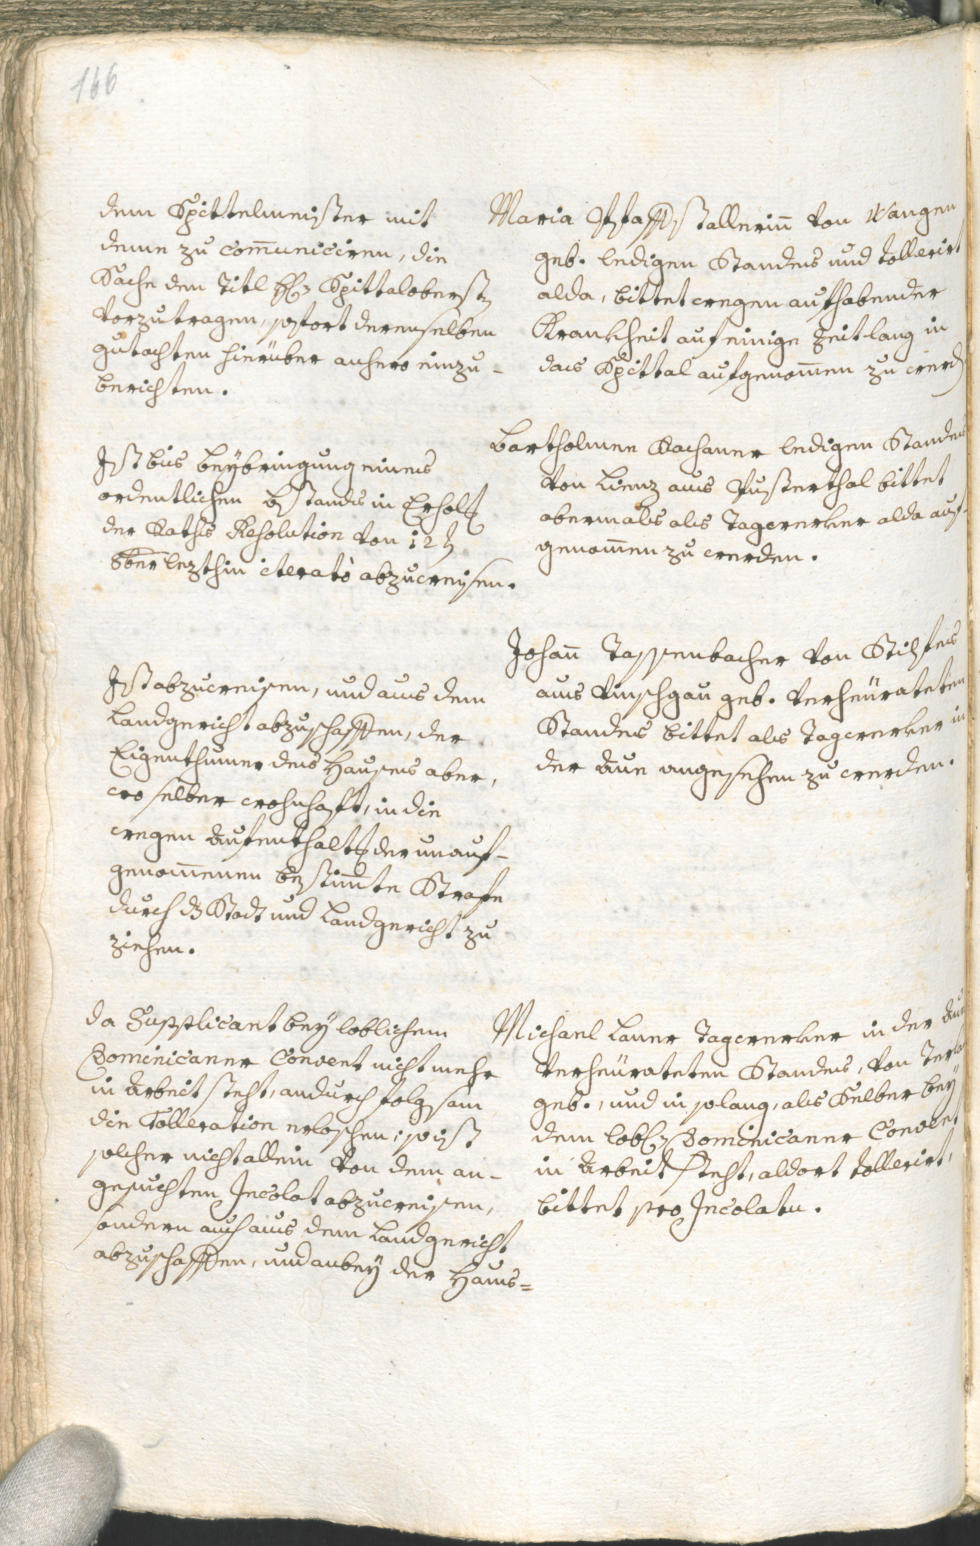 166
dem Spittelmeister mit
deme zu com̄uniciren, die
Sache dem Titl H: Spittalobersten
Vorzutragen, sofort derenselben
gutachten hierüber anhero einzu-
berichten.
Maria Pfaffstallerin̄ von Wangen
geb. ledigen Standes und tollerirt
alda, bittet wegen aufhabender
Krankheit auf einige Zeit-lang in
das Spittal aufgenom̄en zu werd
Ist bis beÿbringung eines
ordentlichen bstands in
der Raths Resolution von 12
8ber lezthin iterato abzuweisen.
Bartholmee ledigen Standes
von Lienz aus Pusterthal bittet
abermals als Tagwerker alda auf-
genom̄en zu werden.
Ist abzuweisen, und aus dem
Landgericht abzuschaffen, der
Eigenthumer des Hauses aber,
wo selber wohnhaft, in die
wegen Aufenthalts der unauf-
genom̄enen bestim̄te Strafe
durch Stadt und Landgericht zu
ziehen.
Johan̄ Tappenbacher von Stilfes
aus Vinschgau geb. Verheürateten
Standes bittet als Tagwerker in
der Aue angesehen zu werden.
da Supplicant beÿ loblichem
Dominicaner Convent nicht mehr
in Arbeit steht, andurch folgsam
die Tolleration erloschen; so ist
solcher nicht allein von dem an-
gesuchten Incolat abzuweisen,
sondern auch aus dem Landgericht
abzuschaffen, und anbeÿ der Haus=
Michael Laner Tagwerker in der Au
Verheürateten Standes, von
geb., und in solang, als Selber beÿ
dem lobl: Dominicaner Convent
in Arbeit steht, aldort tollerirt,
bittet pro Incolatu.